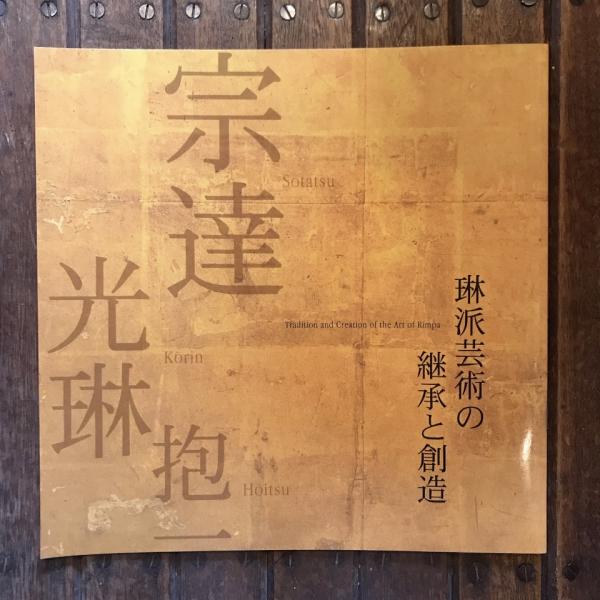 宗達
Sotatsu
光琳
Korin
抱一
Hoitsu
Tradition and Creation of the Art of Rimpa
琳派芸術の
継承と創造